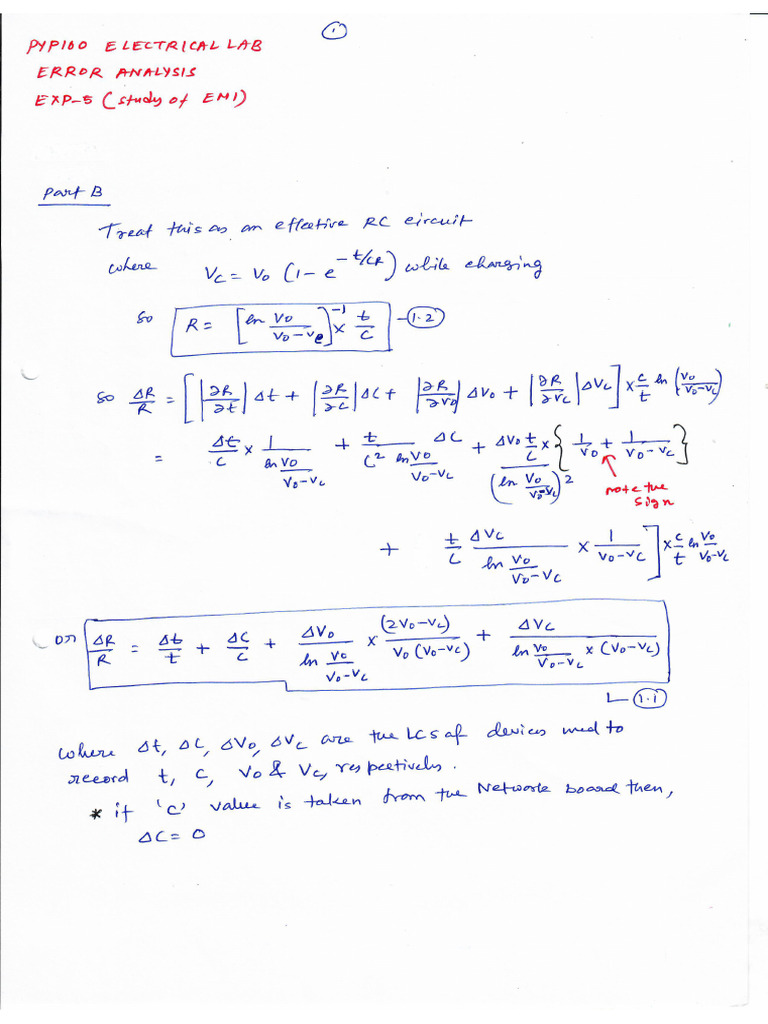 1
PYP100 ELECTRICAL LAB
ERROR ANALYSIS
EXP-5 (study of EMI)
Part B
Treat this as an effective RC circuit
where V_C = V_0 (1 - e^{-t/CR}) while charging
so R = [ln V_0/(V_0-V_e)]^{-1} × t/C — (1.2)
so ΔR/R = [|∂R/∂t| Δt + |∂R/∂C| ΔC + |∂R/∂V_0| ΔV_0 + |∂R/∂V_C| ΔV_C] × C/t ln (V_0/(V_0-V_C))
= Δt/C × 1/(ln V_0/(V_0-V_C)) + t/(C^2 ln V_0/(V_0-V_C)) ΔC + (ΔV_0 t/C)/(ln V_0/(V_0-V_C))^2 × {1/V_0 + 1/(V_0-V_C)}
note the
sign
+ t/C ΔV_C/(ln V_0/(V_0-V_C)) × 1/(V_0-V_C)] × C/t ln V_0/(V_0-V_C)
or ΔR/R = Δt/t + ΔC/C + ΔV_0/(ln V_0/(V_0-V_C)) × (2V_0-V_C)/(V_0(V_0-V_C)) + ΔV_C/(ln V_0/(V_0-V_C) × (V_0-V_C))
(1.1)
where Δt, ΔC, ΔV_0, ΔV_C are the LCs of devices used to
record t, C, V_0 & V_C, respectively.
* if 'C' value is taken from the Network board then,
ΔC = 0